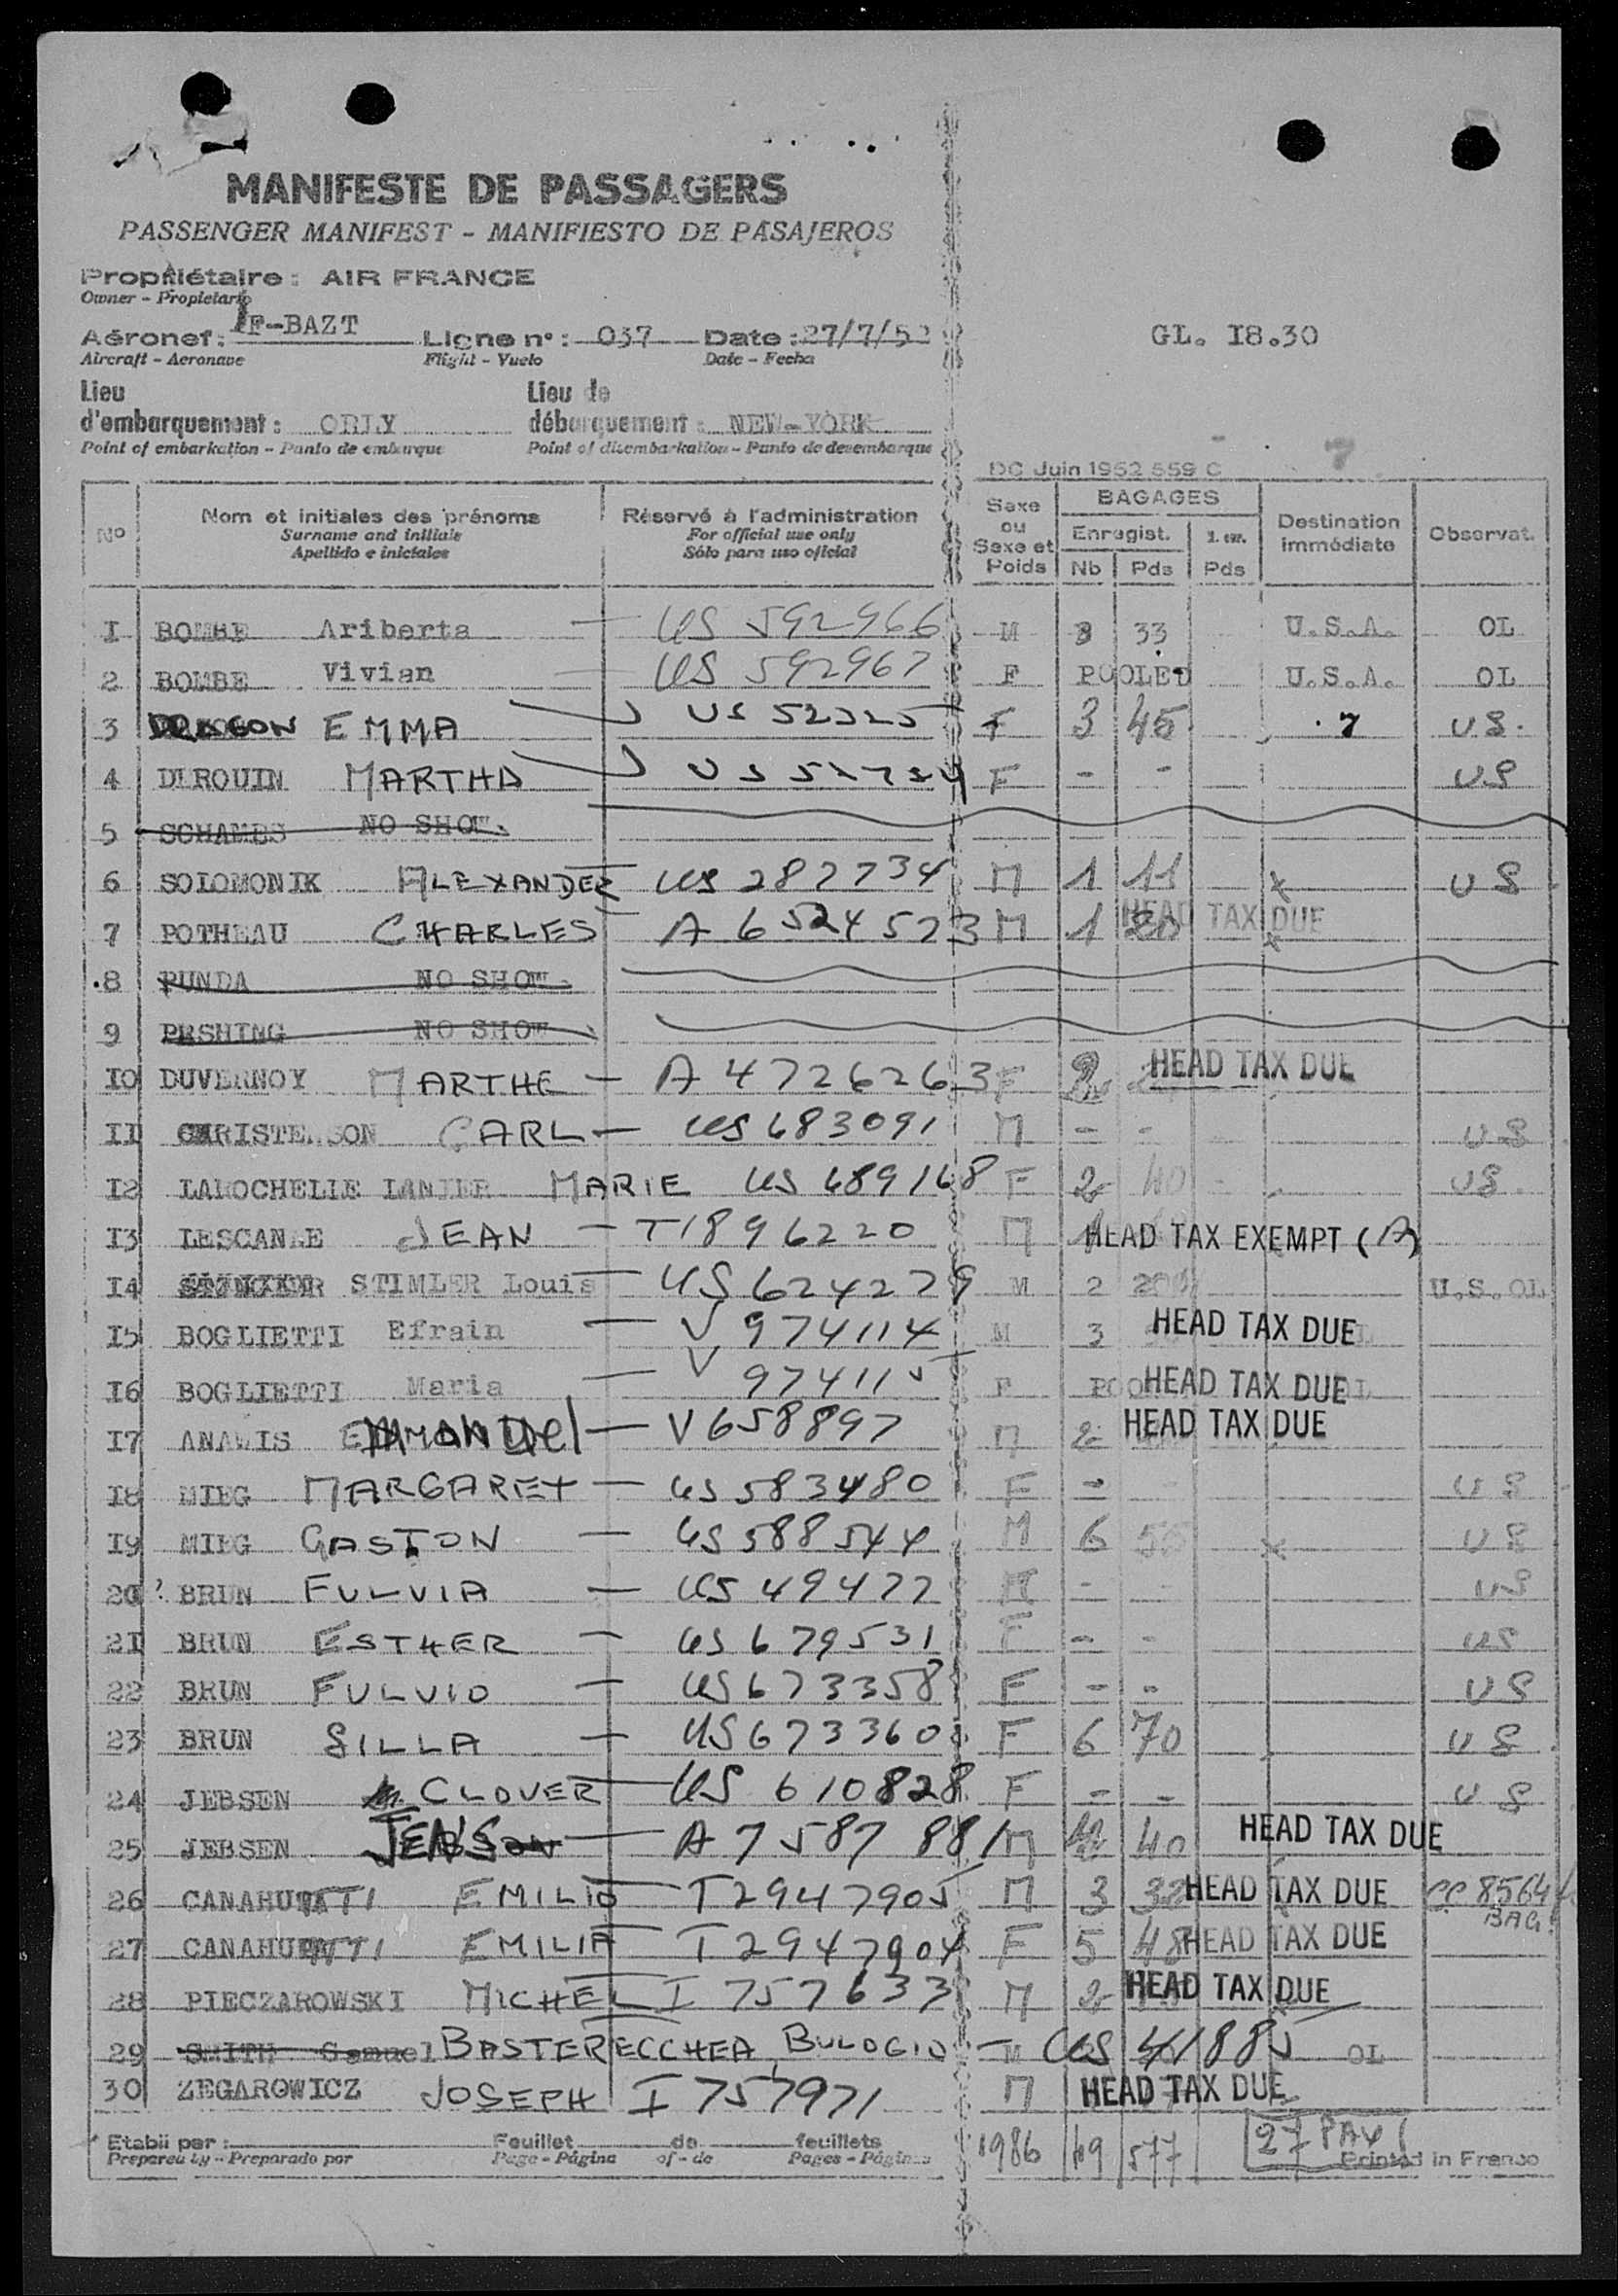 MANIFESTE DE PASSAGERS
PASSENGER MANIFEST - MANIFIESTO DE PASAJEROS
Propriétaire : AIR FRANCE
Owner - Propietario
Aéronef : F-BAZT Ligne n° : 037 Date : 27/7/52 GL. I8.30
Aircraft - Aeronave Flight - Vuelo Date - Fecha
Lieu d'embarquement : ORLY Lieu de débarquement : NEW-YORK
Point of embarkation - Punto de embarque Point of disembarkation - Punto de desembarque
DC Juin 1952 559 C 7
No Nom et initiales des prénoms Réservé à l'administration Sexe ou Sexe et Poids BAGAGES Destination immédiate Observat.
Surname and initials For official use only Enregist.
Apellido e iniciales Sólo para uso oficial Nb Pds Pds
I BOMBE Ariberta — US 592966 M 3 33 U.S.A. OL
2 BOMBE Vivian — US 592967 F POOLED U.S.A. OL
3 DRAGON EMMA US 52325 F 3 45 US.
4 DEROUIN MARTHA US F - - US
5 SCHAMES NO SHOW.
6 SOLOMONIK ALEXANDER US 282734 M 1 11 x US
7 POTHEAU CHARLES A 6524523 M 1 20 HEAD TAX DUE x
8 PUNDA NO SHOW.
9 PRSHING NO SHOW
IO DUVERNOY MARTHE — A 4726263 F 2 HEAD TAX DUE
II CHRISTENSON CARL — US 683091 M - - US
I2 LAROCHELLE LANIER MARIE US 689168 F 2 40 - US.
I3 LESCANNE JEAN — T1896220 M 1 HEAD TAX EXEMPT (A)
I4 STIMLER Louis — US 624229 M 2 20 U.S.OL
I5 BOGLIETTI Efrain — V 974114 M 3 HEAD TAX DUE
I6 BOGLIETTI Maria — V 974115 F HEAD TAX DUE
I7 ANAWIS EMMANUEL — V 658897 M 2 HEAD TAX DUE
I8 MIEG MARGARET — US 583480 F - US
I9 MIEG GASTON — US 588544 M 6 55 x US
20 BRUN FULVIA — US 49477 M - - US
2I BRUN ESTHER — US 679531 F - - US
22 BRUN FULVIO — US 673358 F - - US
23 BRUN SILLA — US 673360 F 6 70 US
24 JEBSEN CLOVER — US 610828 F - - US
25 JEBSEN — A 7587 881 M 2 40 HEAD TAX DUE
26 CANAHUATTI EMILIO — T2947905 M 3 32 HEAD TAX DUE CC 8564 BAG.
27 CANAHUATTI EMILIA T 2947904 F 5 48 HEAD TAX DUE
28 PIECZAROWSKI MICHEL I 757633 M 2 HEAD TAX DUE
29 SMITH Samuel BASTERECCHEA BULOGIO — M US 41885 OL
30 ZEGAROWICZ JOSEPH I 757971 M HEAD TAX DUE
Etabli par : Feuillet de feuillets 1986 49 577 27 PAX
Prepared by - Preparado por Page - Página of - de Pages - Páginas Printed in France